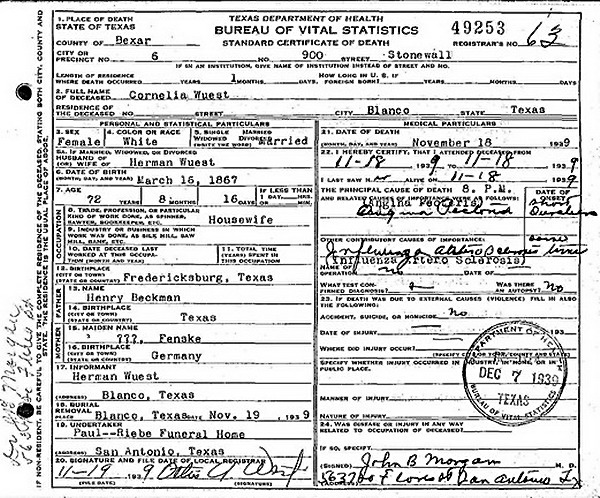 TEXAS DEPARTMENT OF HEALTH
BUREAU OF VITAL STATISTICS
STANDARD CERTIFICATE OF DEATH
49253
REGISTRAR'S NO. 63
1. PLACE OF DEATH
STATE OF TEXAS
COUNTY OF Bexar
CITY OR
PRECINCT NO. 6 900 STREET Stonewall
IF IN AN INSTITUTION, GIVE NAME OF INSTITUTION INSTEAD OF STREET AND NO.
LENGTH OF RESIDENCE
WHERE DEATH OCCURRED YEARS 1 MONTHS DAYS HOW LONG IN U. S. IF FOREIGN BORN? YEARS MONTHS DAYS
2. FULL NAME
OF DECEASED Cornelia Wuest
RESIDENCE OF
THE DECEASED NO. STREET CITY Blanco Texas
PERSONAL AND STATISTICAL PARTICULARS
3. SEX
Female
4. COLOR OR RACE
White
5. SINGLE MARRIED
WIDOWED DIVORCED
(WRITE THE WORD) Married
5A. IF MARRIED, WIDOWED, OR DIVORCED
HUSBAND OF
(OR) WIFE OF Herman Wuest
6. DATE OF BIRTH
(MONTH, DAY, AND YEAR) March 15, 1867
7. AGE
72 YEARS 8 MONTHS 16 DAYS
IF LESS THAN 1 DAY
HOURS MIN.
OCCUPATION
8. TRADE, PROFESSION, OR PARTICULAR
KIND OF WORK DONE, AS SPINNER,
SAWYER, BOOKKEEPER, ETC. Housewife
9. INDUSTRY OR BUSINESS IN WHICH
WORK WAS DONE, AS SILK MILL, SAW
MILL, BANK, ETC.
10. DATE DECEASED LAST
WORKED AT THIS OCCUPATION (MONTH AND YEAR)
11. TOTAL (YEARS)
SPENT IN THIS
OCCUPATION
12. BIRTHPLACE
(CITY OR TOWN)
(STATE OR COUNTRY) Fredericksburg, Texas
FATHER
13. NAME
Henry Beckman
14. BIRTHPLACE
(CITY OR TOWN)
(STATE OR COUNTRY) Texas
MOTHER
15. MAIDEN NAME
???, Fenske
16. BIRTHPLACE
(CITY OR TOWN)
(STATE OR COUNTRY) Germany
17. INFORMANT
Herman Wuest
ADDRESS Blanco, Texas
18. BURIAL
REMOVAL
PLACE Blanco, Texas DATE Nov. 19 1939
19. UNDERTAKER
Paul--Riebe Funeral Home
ADDRESS San Antonio, Texas
20. SIGNATURE AND FILE DATE OF LOCAL REGISTRAR
11-19 1939
(FILE DATE) (SIGNATURE)
MEDICAL PARTICULARS
21. DATE OF DEATH
(MONTH, DAY, AND YEAR) November 18 1939
22. I HEREBY CERTIFY, THAT I ATTENDED DECEASED FROM
11-18 1939 TO 11-18 1939
I LAST SAW ALIVE ON 11-18 1939
THE PRINCIPAL CAUSE OF DEATH 8 P.M.
DATE OF ONSET
(Angina Pectoris)
OTHER CONTRIBUTORY CAUSES OF IMPORTANCE:
Influenza
(Influenza Artero Sclerosis)
NAME OF OPERATION no DATE OF
WHAT TEST CONFIRMED DIAGNOSIS? WAS THERE AN AUTOPSY? No
23. IF DEATH WAS DUE TO EXTERNAL CAUSES (VIOLENCE) FILL IN ALSO
THE FOLLOWING:
ACCIDENT, SUICIDE, OR HOMICIDE? No
DATE OF INJURY 193
WHERE DID INJURY OCCUR?
(SPECIFY CITY OR TOWN, COUNTY AND STATE)
SPECIFY WHETHER INJURY OCCURRED IN INDUSTRY, IN HOME, OR IN
PUBLIC PLACE.
MANNER OF INJURY
NATURE OF INJURY
24. WAS DISEASE OR INJURY IN ANY
WAY RELATED TO OCCUPATION OF DECEASED?
(SIGNED) John B Morgan M. D.
San Antonio Tx
DEPARTMENT OF HEALTH
DEC 7 1939
TEXAS
BUREAU OF VITAL STATISTICS